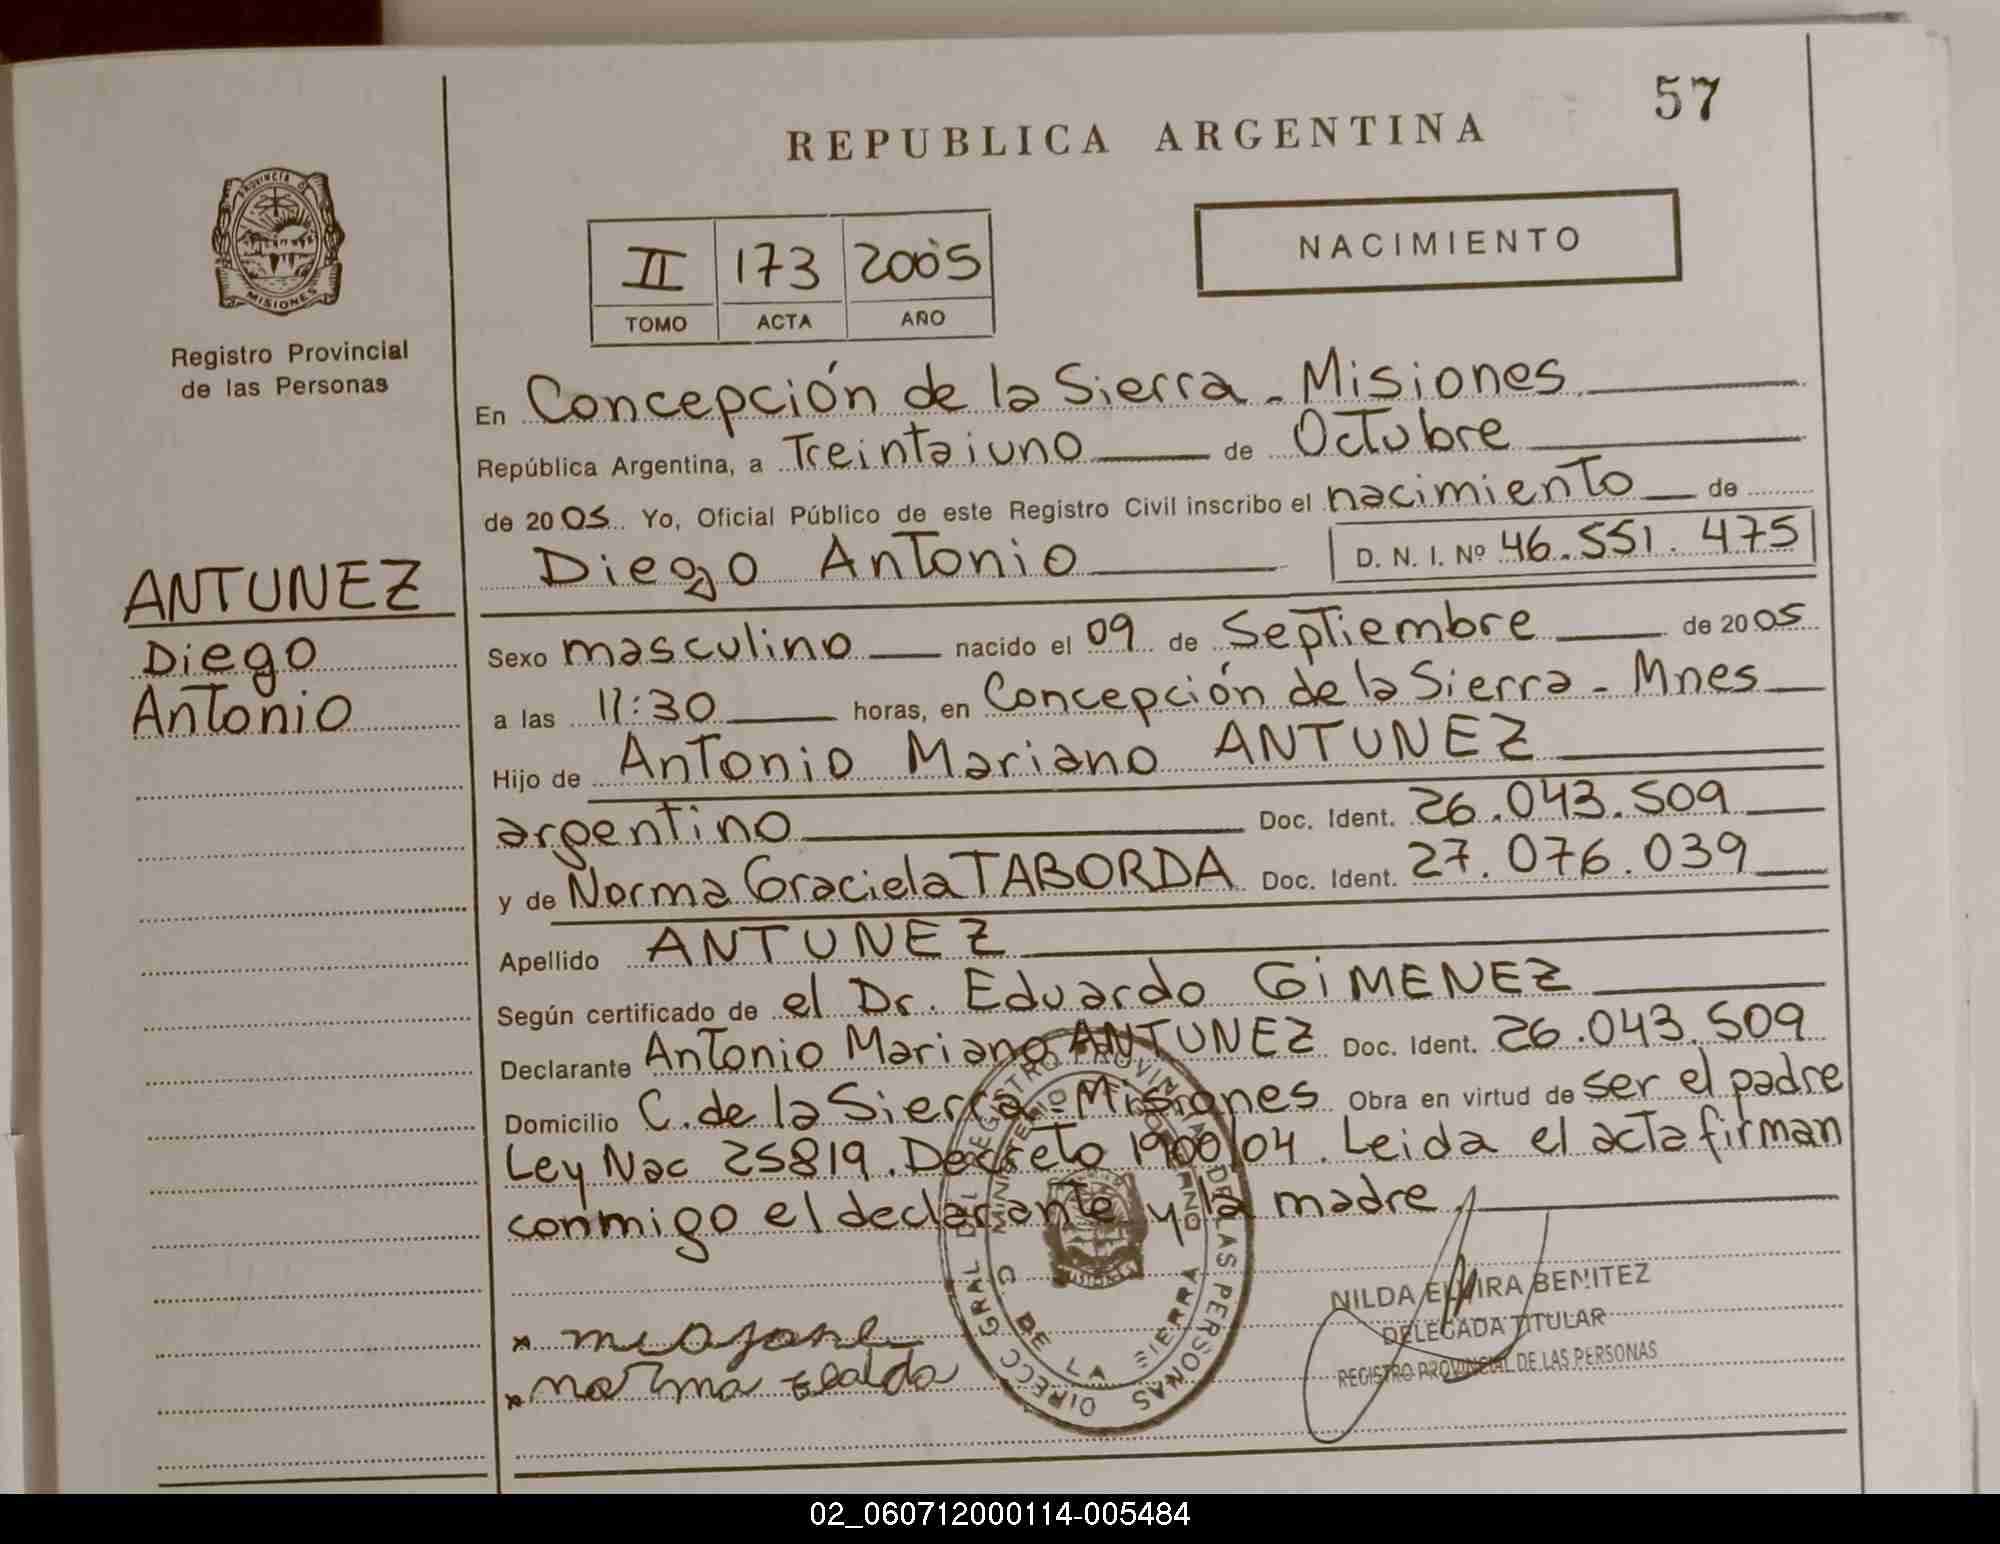 57
REPUBLICA ARGENTINA
PROVINCIA DE
MISIONES
Registro Provincial
de las Personas
NACIMIENTO
II 173 2005
TOMO ACTA AÑO
En Concepción de la Sierra - Misiones
República Argentina, a Treintaiuno de Octubre
de 2005 Yo, Oficial Público de este Registro Civil inscribo el nacimiento de
Diego Antonio D. N. I. Nº 46.551.475
ANTUNEZ
Diego
Antonio
Sexo masculino nacido el 09 de Septiembre de 2005
a las 11:30 horas, en Concepción de la Sierra - Mnes
Hijo de Antonio Mariano ANTUNEZ
argentino Doc. Ident. 26.043.509
y de Norma Graciela TABORDA Doc. Ident. 27.076.039
Apellido ANTUNEZ
Según certificado de el Dr. Eduardo GIMENEZ
Declarante Antonio Mariano ANTUNEZ Doc. Ident. 26.043.509
Domicilio C. de la Sierra - Misiones Obra en virtud de ser el padre
Ley Nac 25819. Decreto 1900/04. Leida el acta firman
conmigo el declarante y la madre
DIRECC GRAL DEL REGISTRO PROVINCIAL DE LAS PERSONAS
C. DE LA SIERRA
NILDA ELVIRA BENITEZ
DELEGADA TITULAR
REGISTRO PROVINCIAL DE LAS PERSONAS
02_060712000114-005484